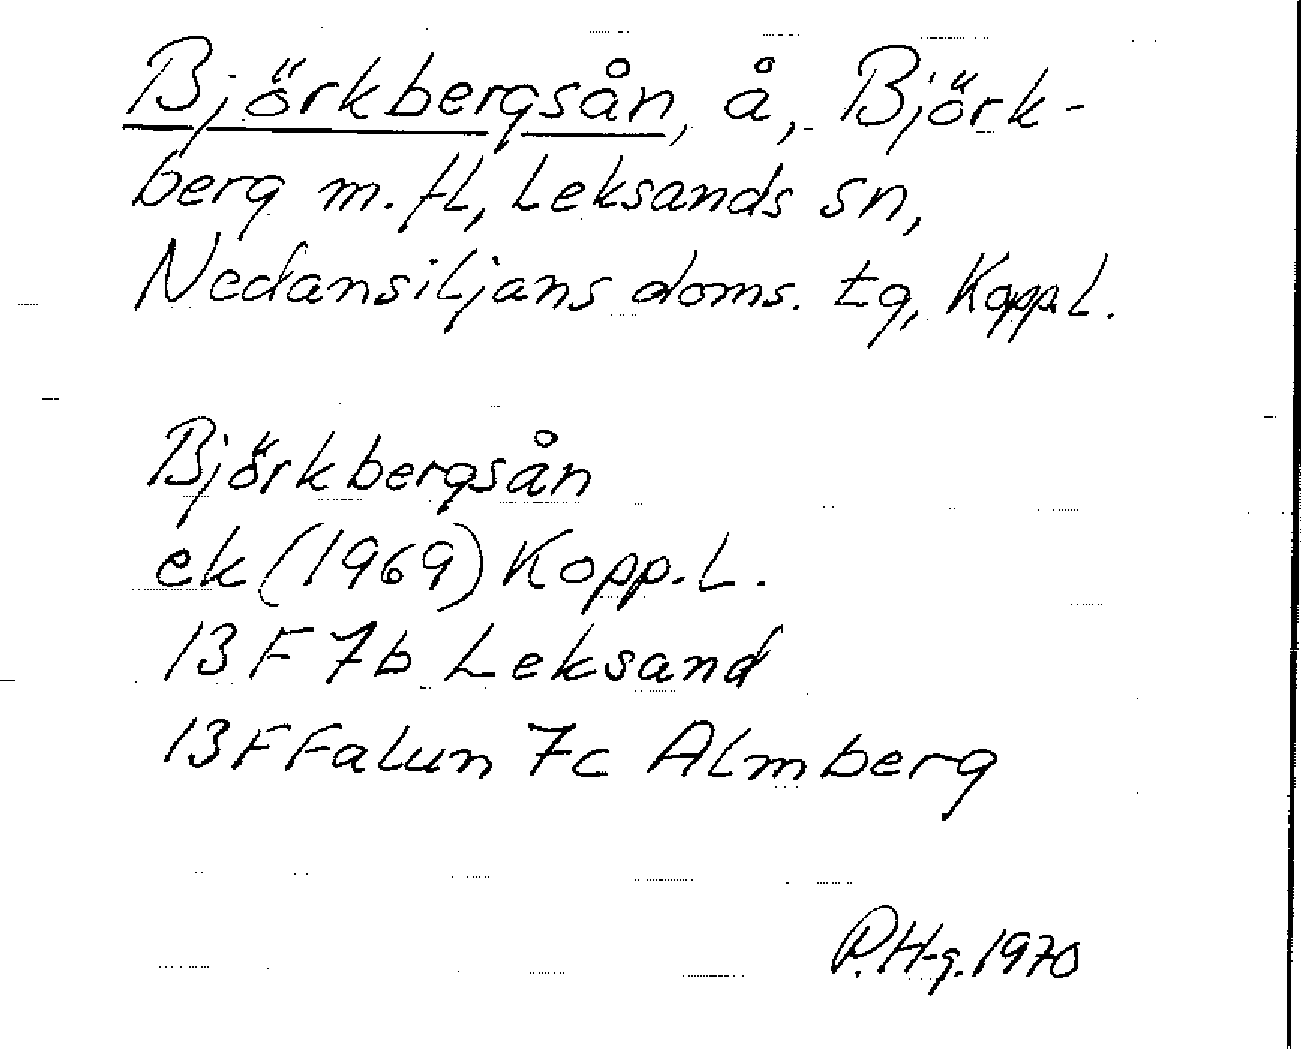 Björkbergsån, å, Björk-
berg m. fl, Leksands sn,
Nedansiljans doms. tg, Kopp.L.
Björkbergsån
ek (1969) Kopp. L.
13 F 7b Leksand
13F Falun 7c Almberg
P.H-g. 1970